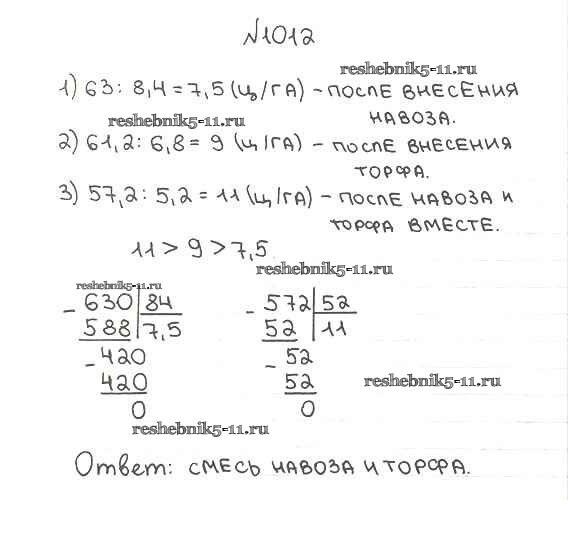 №1012
reshebnik5-11.ru
1) 63 : 8,4 = 7,5 (ц/га) – после внесения
навоза.
reshebnik5-11.ru
2) 61,2 : 6,8 = 9 (ц/га) – после внесения
торфа.
3) 57,2 : 5,2 = 11 (ц/га) – после навоза и
торфа вместе.
11 > 9 > 7,5
reshebnik5-11.ru
reshebnik5-11.ru
- 630 | 84
588 | 7,5
- 420
420
0
- 572 | 52
52 | 11
- 52
52
0
reshebnik5-11.ru
reshebnik5-11.ru
Ответ: смесь навоза и торфа.